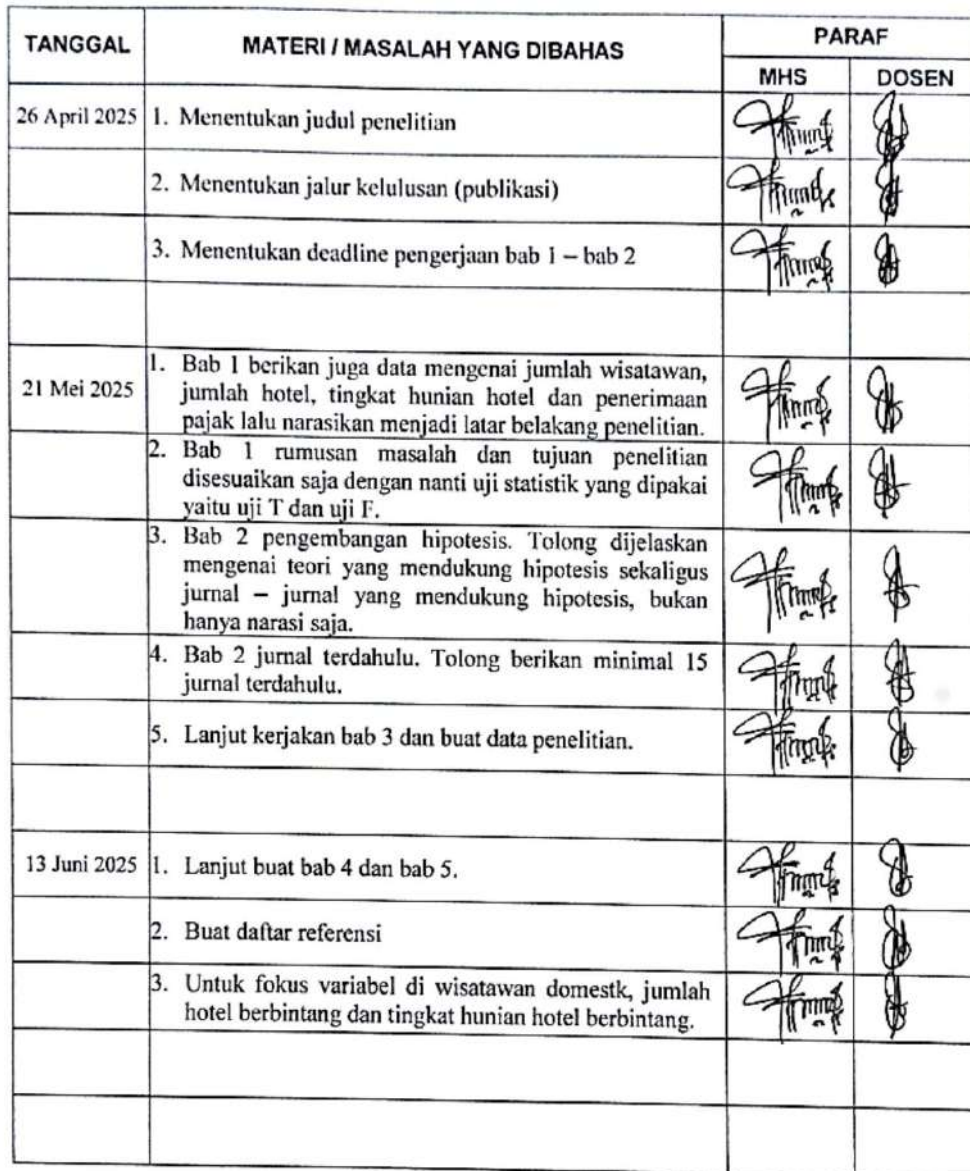 TANGGAL
MATERI / MASALAH YANG DIBAHAS
PARAF
MHS
DOSEN
26 April 2025
1. Menentukan judul penelitian
2. Menentukan jalur kelulusan (publikasi)
3. Menentukan deadline pengerjaan bab 1 – bab 2
21 Mei 2025
1. Bab 1 berikan juga data mengenai jumlah wisatawan,
jumlah hotel, tingkat hunian hotel dan penerimaan
pajak lalu narasikan menjadi latar belakang penelitian.
2. Bab 1 rumusan masalah dan tujuan penelitian
disesuaikan saja dengan nanti uji statistik yang dipakai
yaitu uji T dan uji F.
3. Bab 2 pengembangan hipotesis. Tolong dijelaskan
mengenai teori yang mendukung hipotesis sekaligus
jurnal – jurnal yang mendukung hipotesis, bukan
hanya narasi saja.
4. Bab 2 jurnal terdahulu. Tolong berikan minimal 15
jurnal terdahulu.
5. Lanjut kerjakan bab 3 dan buat data penelitian.
13 Juni 2025
1. Lanjut buat bab 4 dan bab 5.
2. Buat daftar referensi
3. Untuk fokus variabel di wisatawan domestk, jumlah
hotel berbintang dan tingkat hunian hotel berbintang.